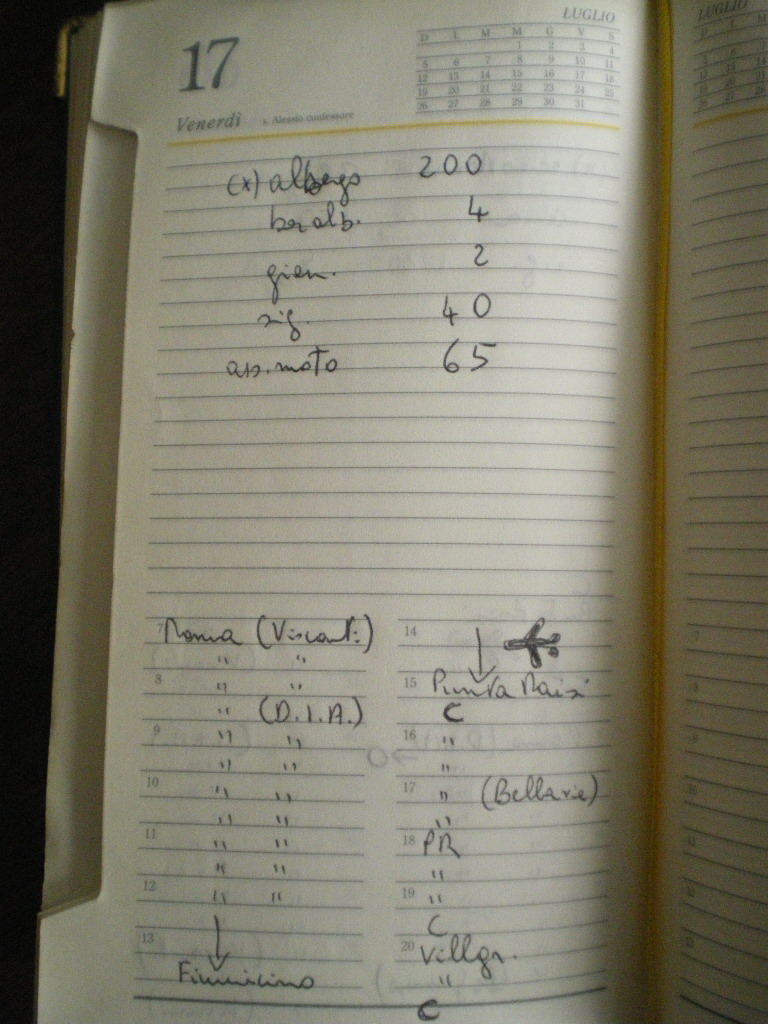 17
Venerdì
s. Alessio confessore
LUGLIO
D L M M G V S
1 2 3 4
5 6 7 8 9 10 11
12 13 14 15 16 17 18
19 20 21 22 23 24 25
26 27 28 29 30 31
LUGLIO
(x) albergo 200
bar alb. 4
gion. 2
sig. 40
ass. moto 65
7 Roma (Visconti)
" "
8 " "
" (D.I.A.)
9 " "
" "
10 " "
" "
11 " "
" "
12 " "
13
Fiumicino
14
15 Punta Raisi
C
16 "
"
17 " (Bellavie)
"
18 PR
"
19 "
C
20 Villgr.
"
C